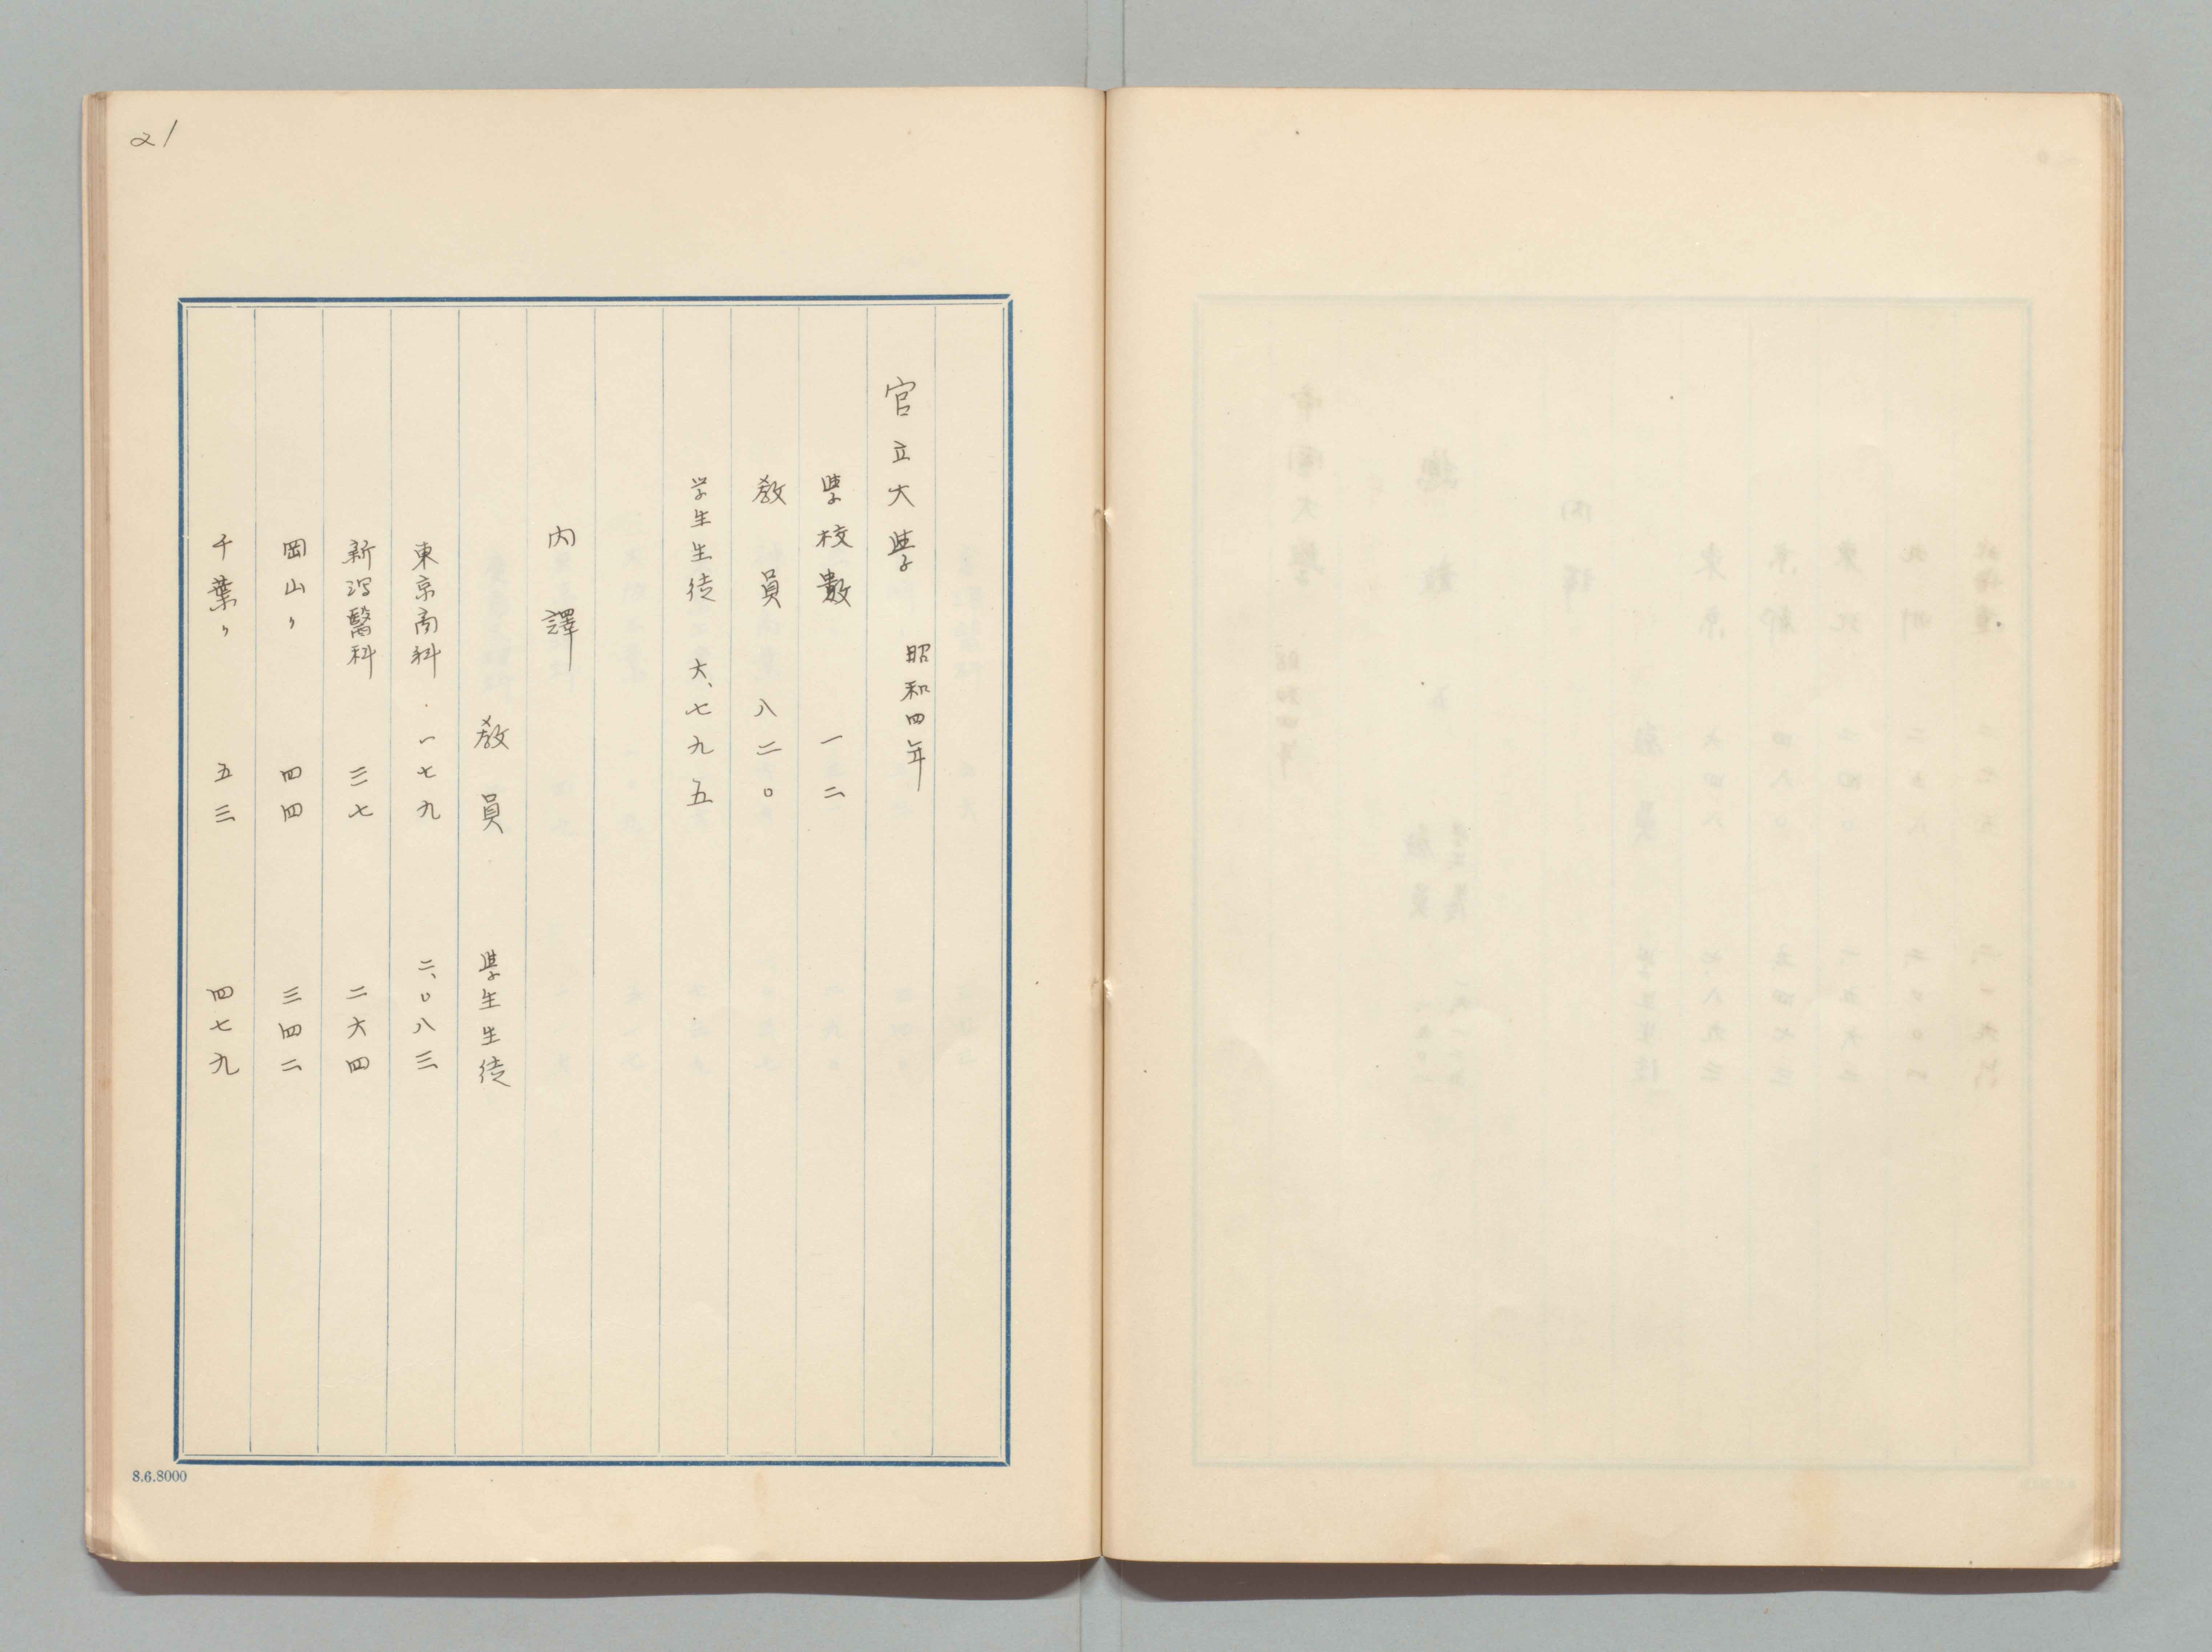 21
官立大學
昭和四年
學校數 一二
教員 八二〇
学生生徒 六、七九五
内譯
教員 學生生徒
東京商科 一七九 二、〇八三
新潟醫科 三七 二六四
岡山〃 四四 三四二
千葉〃 五三 四七九
8.6.8000